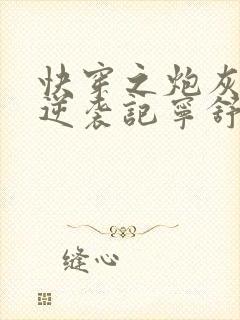 快穿之炮灰
逆袭記寧舒
缝心